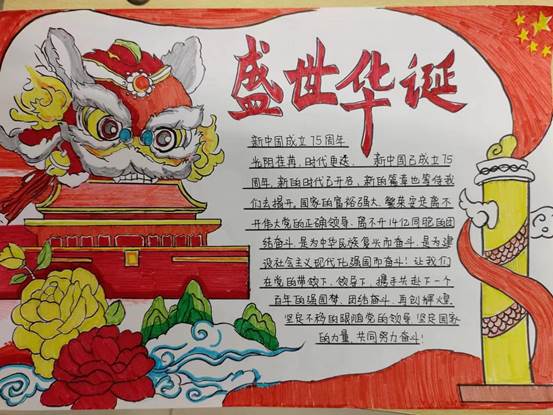 盛世华诞
新中国成立75周年
光阴荏苒,时代更迭, 新中国已成立75
周年,新的时代已开启,新的篇章也等待我
们去揭开,国家的富裕强大、繁荣安定离不
开伟大党的正确领导,离不开14亿同胞的团
结奋斗,是为中华民族复兴而奋斗,是为建
设社会主义现代化强国而奋斗!让我们
在党的带领下、领导下,携手共赴下一个
百年的强国梦,团结奋斗,再创辉煌,
坚定不移的跟随党的领导,坚定国家
的力量,共同努力奋斗!